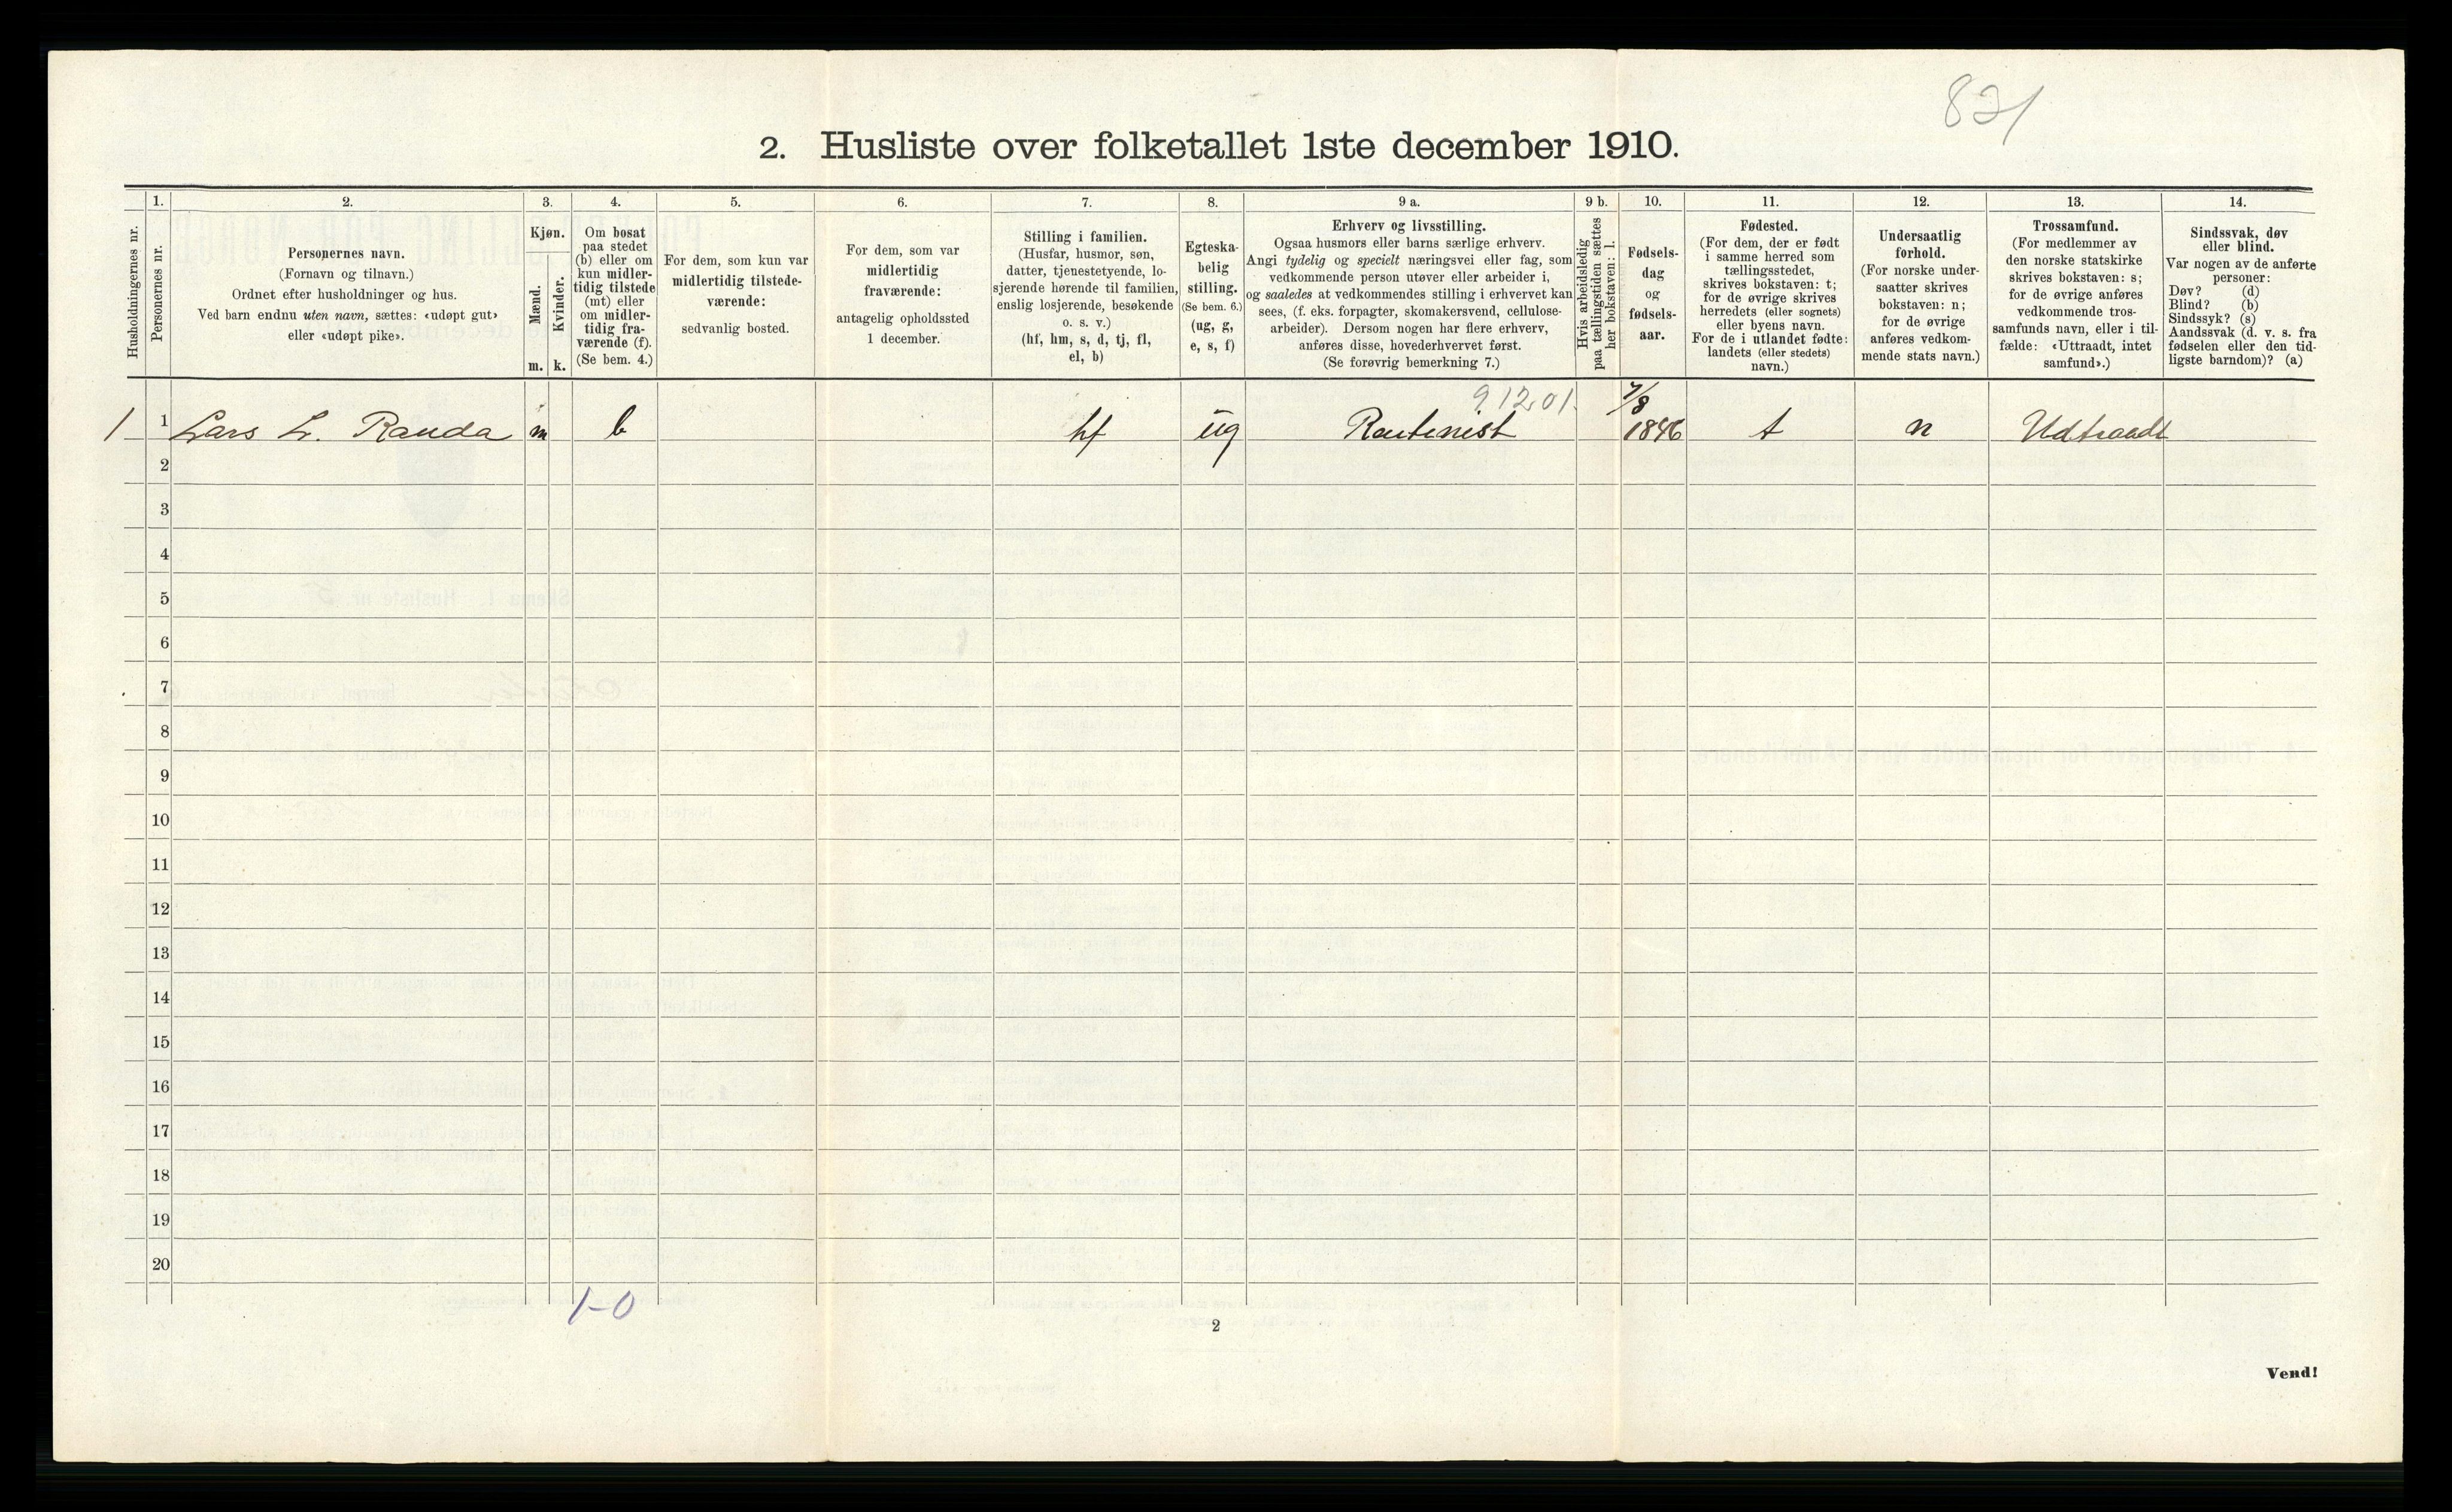 821
2. Husliste over folketallet 1ste december 1910.
1. 2. 3. 4. 5. 6. 7. 8. 9 a. 9 b. 10. 11. 12. 13. 14.
Husholdningernes nr.
Personernes nr.
Personernes navn.
(Fornavn og tilnavn.)
Ordnet efter husholdninger og hus.
Ved barn endnu uten navn, sættes: «udøpt gut»
eller «udøpt pike».
Kjøn.
Mænd.
Kvinder.
m. k.
Om bosat
paa stedet
(b) eller om
kun midler-
tidig tilstede
(mt) eller
om midler-
tidig fra-
værende (f).
(Se bem. 4.)
For dem, som kun var
midlertidig tilstede-
værende:
sedvanlig bosted.
For dem, som var
midlertidig
fraværende:
antagelig opholdssted
1 december.
Stilling i familien.
(Husfar, husmor, søn,
datter, tjenestetyende, lo-
sjerende hørende til familien,
enslig losjerende, besøkende
o. s. v.)
(hf, hm, s, d, tj, fl,
el, b)
Egteska-
belig
stilling.
(Se bem. 6.)
(ug, g,
e, s, f)
Erhverv og livsstilling.
Ogsaa husmors eller barns særlige erhverv.
Angi tydelig og specielt næringsvei eller fag, som
vedkommende person utøver eller arbeider i,
og saaledes at vedkommendes stilling i erhvervet kan
sees, (f. eks. forpagter, skomakersvend, cellulose-
arbeider). Dersom nogen har flere erhverv,
anføres disse, hovederhvervet først.
(Se forøvrig bemerkning 7.)
Hvis arbeidsledig
paa tællingstiden sættes
her bokstaven: l.
Fødsels-
dag
og
fødsels-
aar.
Fødested.
(For dem, der er født
i samme herred som
tællingsstedet,
skrives bokstaven: t;
for de øvrige skrives
herredets (eller sognets)
eller byens navn.
For de i utlandet fødte:
landets (eller stedets)
navn.)
Undersaatlig
forhold.
(For norske under-
saatter skrives
bokstaven: n;
for de øvrige
anføres vedkom-
mende stats navn.)
Trossamfund.
(For medlemmer av
den norske statskirke
skrives bokstaven: s;
for de øvrige anføres
vedkommende tros-
samfunds navn, eller i til-
fælde: «Uttraadt, intet
samfund».)
Sindssvak, døv
eller blind.
Var nogen av de anførte
personer:
Døv? (d)
Blind? (b)
Sindssyk? (s)
Aandssvak (d. v. s. fra
fødselen eller den tid-
ligste barndom)? (a)
91201. 7/8
1 1 Lars L. Randa m b hf ug Rentenist 1846 t n Udtraadt
2
3
4
5
6
7
8
9
10
11
12
13
14
15
16
17
18
19
20
1-0
2
Vend!